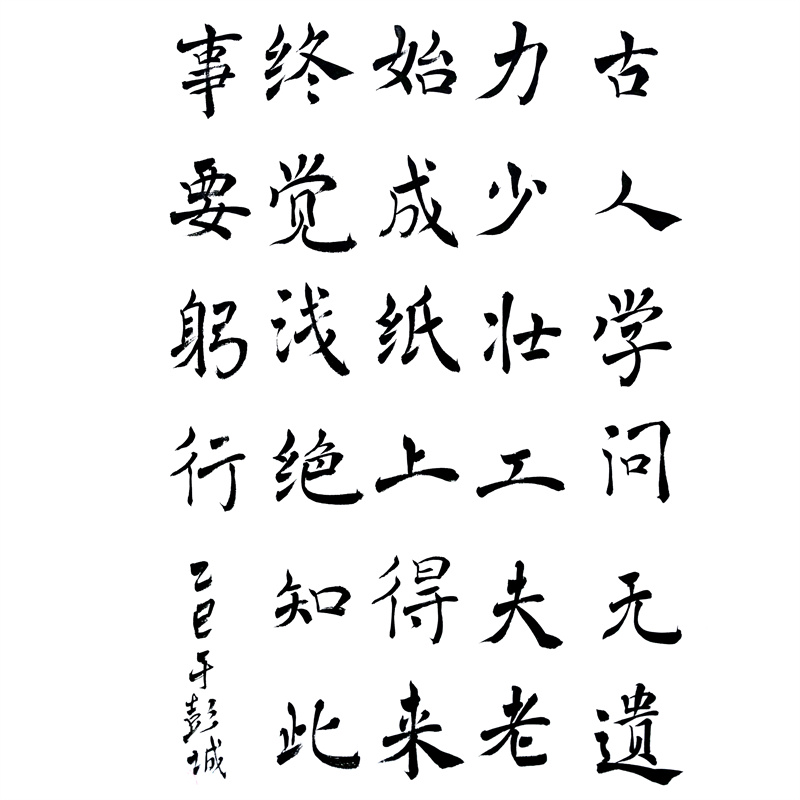 古人学问无遗
力少壮工夫老
始成纸上得来
终觉浅绝知此
事要躬行
乙巳于彭城